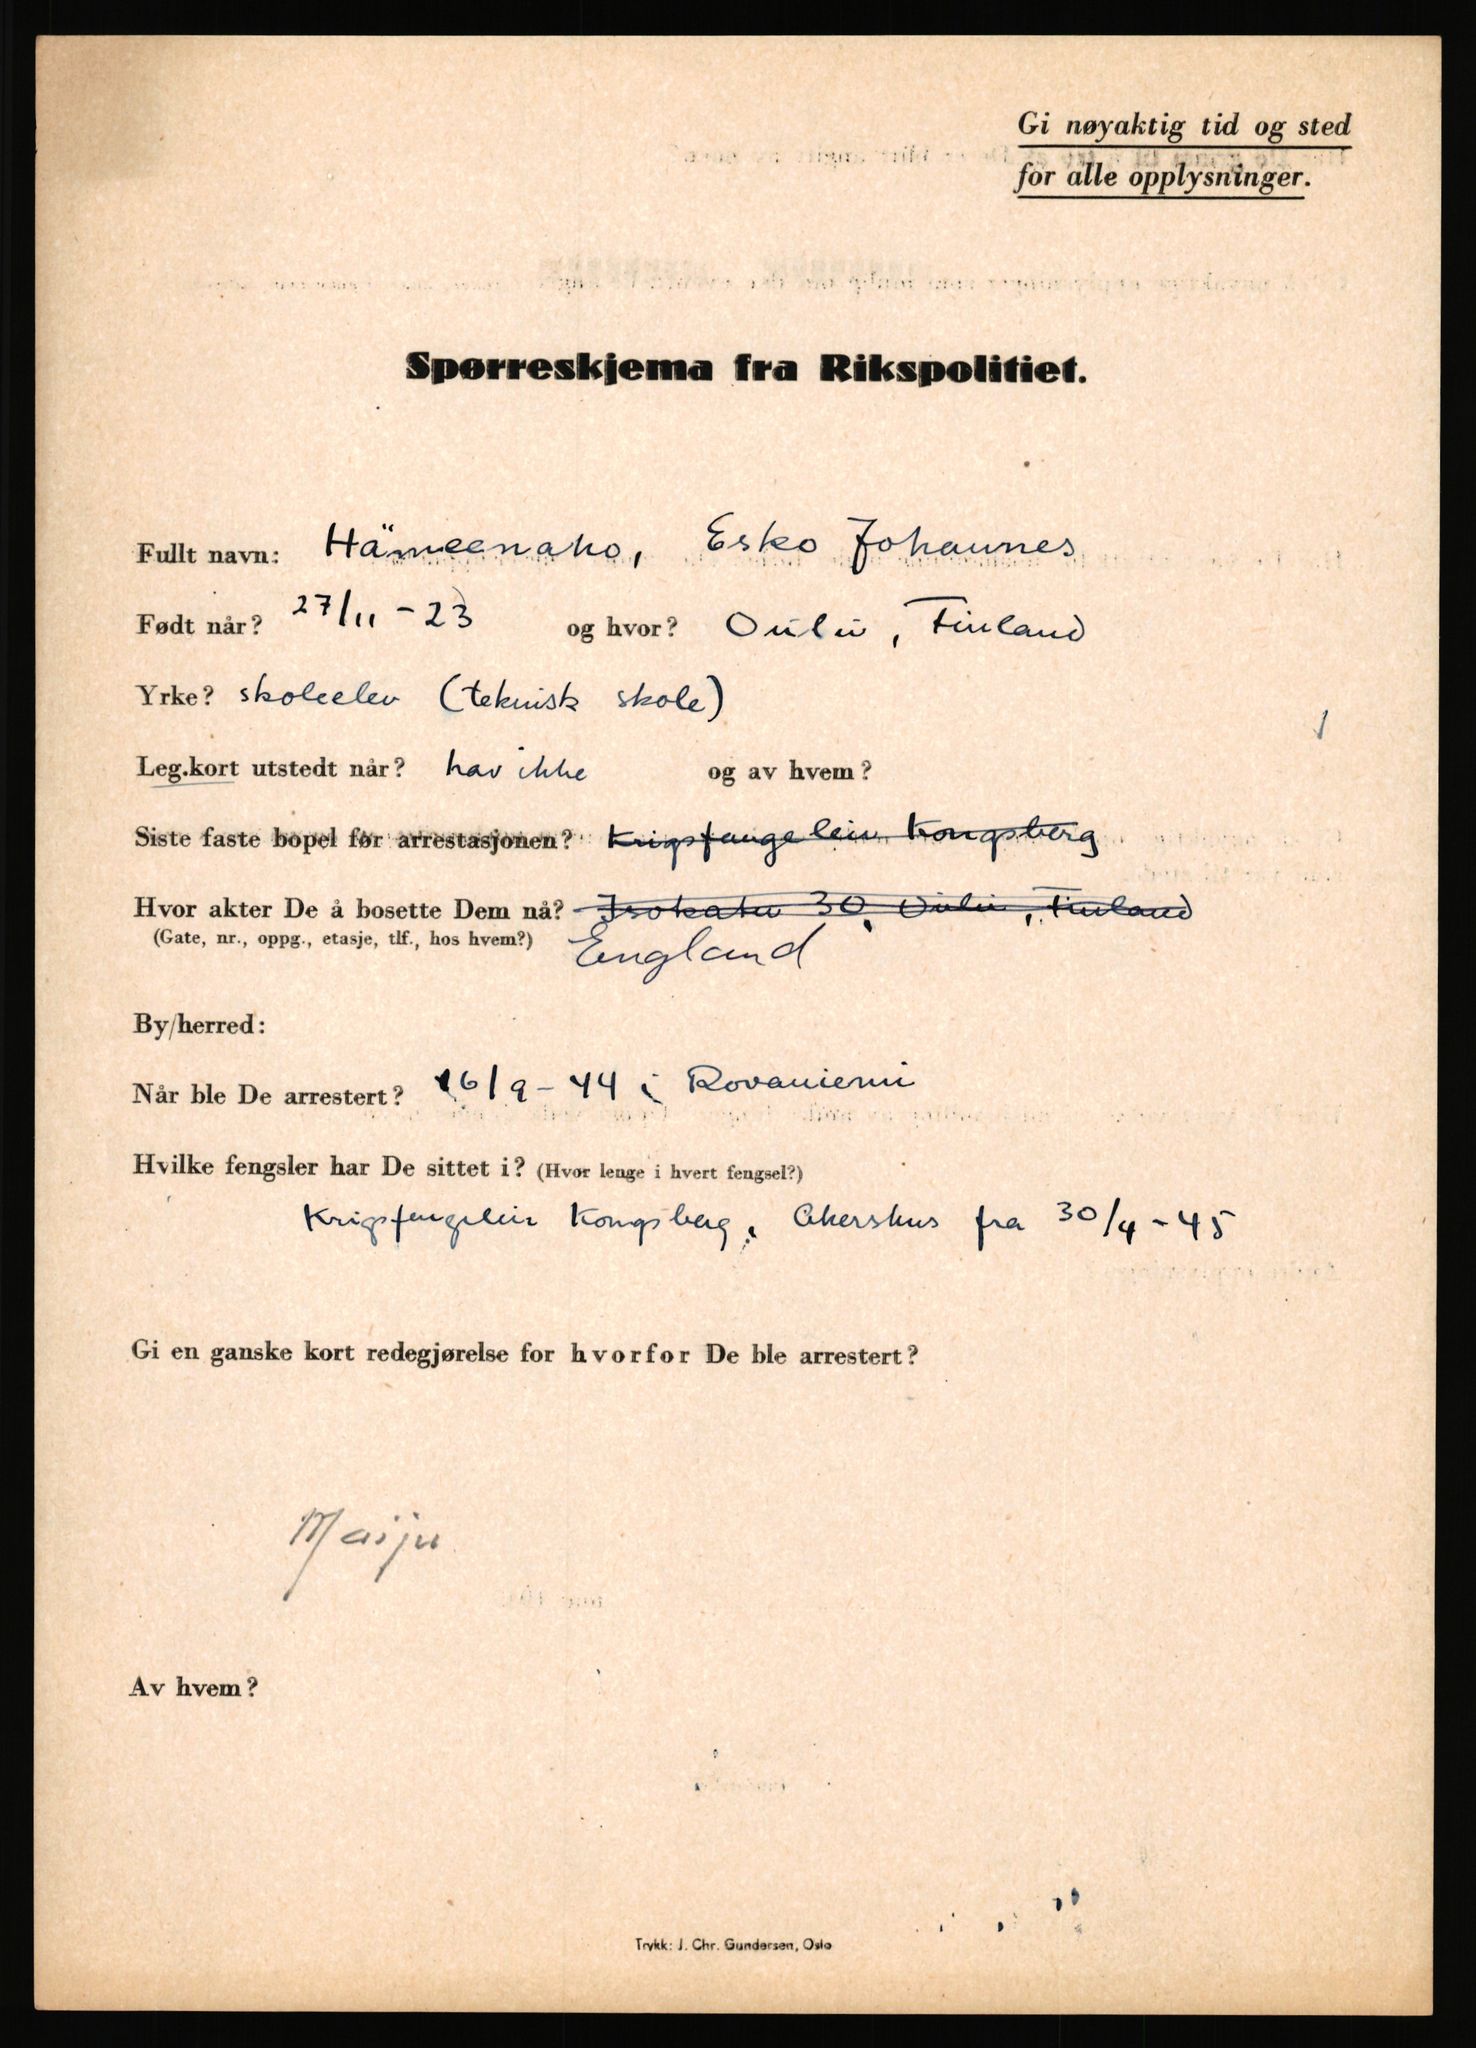 Gi nøyaktig tid og sted
for alle opplysninger.
Spørreskjema fra Rikspolitiet.
Fullt navn: Hämeenaho, Esko Johannes
Født når? 27/11 - 23 og hvor? Oulu, Finland
Yrke? skoleelev (teknisk skole)
Leg.kort utstedt når? har ikke og av hvem?
Siste faste bopel før arrestasjonen? Krigsfangeleir Kongsberg
Hvor akter De å bosette Dem nå? Isokatu 30, Oulu, Finland
(Gate, nr., oppg., etasje, tlf., hos hvem?) England
By/herred:
Når ble De arrestert? 16/9 - 44 i Rovaniemi
Hvilke fengsler har De sittet i? (Hvor lenge i hvert fengsel?)
Krigsfangeleir Kongsberg, Akershus fra 30/4 - 45
Gi en ganske kort redegjørelse for hvorfor De ble arrestert?
Maiju
Av hvem?
Trykk: J. Chr. Gundersen, Oslo